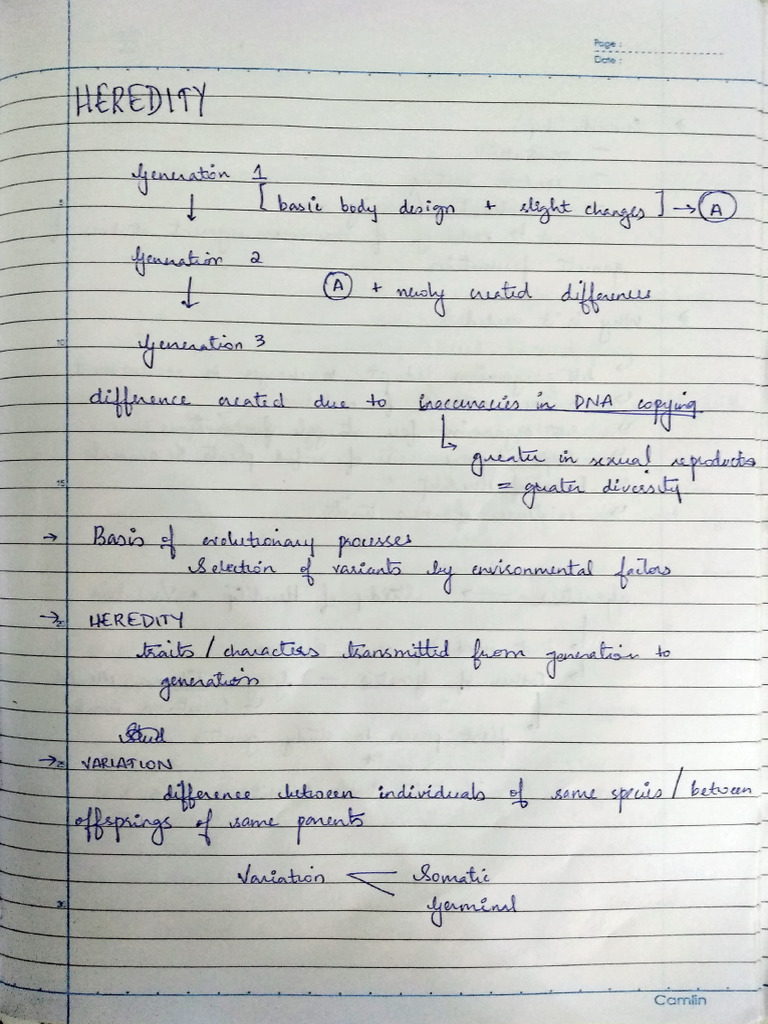 Page :
Date :
HEREDITY
Generation 1
↓ [basic body design + slight changes] → (A)
Generation 2
↓ (A) + newly created difference
Generation 3
difference created due to inaccuracies in DNA copying
↳ greater in sexual reproducto
= greater diversity
→ Basis of evolutionary processes
Selection of variants by environmental factors
→ HEREDITY
traits / characters transmitted from generation to
generation
→ VARIATION
difference between individuals of same species / between
offsprings of same parents
Variation < Somatic
Germinal
Camlin